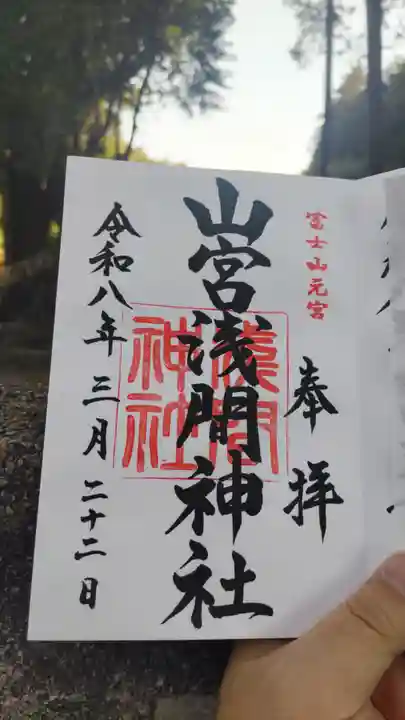 冨士山元宮
奉拝
山宮浅間神社
淺間
神社
令和八年三月二十二日